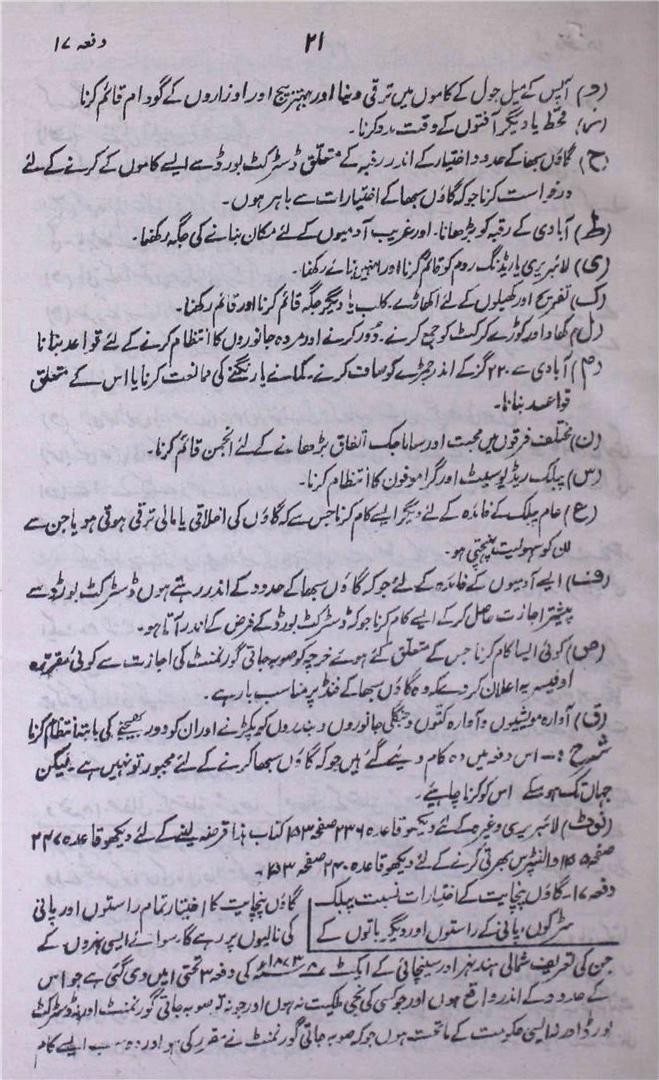 دفعہ ۱۷
۲۱
(و) آپس کے میل جول کے کاموں میں ترقی دینا اور بہتر بیج اور اوزاروں کے گودام قائم کرنا
(ز) قحط یا دیگر آفتوں کے وقت مدد کرنا۔
(ح) گاؤں سبھا کے حدود اختیار کے اندر رقبہ کے متعلق ڈسٹرکٹ بورڈ سے ایسے کاموں کے کرنے کے لئے
درخواست کرنا جو کہ گاؤں سبھا کے اختیارات سے باہر ہوں۔
(ط) آبادی کے رقبہ کو بڑھانا۔ اور غریب آدمیوں کے لئے مکان بنانے کی جگہ رکھنا۔
(ی) لائبریری یا ریڈنگ روم کو قائم کرنا اور انہیں بنائے رکھنا۔
(ک) تفریح اور کھیلوں کے لئے اکھاڑے۔ کلب یا دیگر جگہ قائم کرنا اور قائم رکھنا۔
(ل) کھاد اور کوڑے کرکٹ کو جمع کرنے۔ دور کرنے اور مردہ جانوروں کا انتظام کرنے کے لئے قواعد بنانا
(م) آبادی سے ۲۲۰ گز کے اندر چمڑے کو صاف کرنے۔ کمانے یا رنگنے کی ممانعت کرنا یا اس کے متعلق
قواعد بنانا۔
(ن) مختلف فرقوں میں محبت اور سماجک اتفاق بڑھانے کے لئے انجمن قائم کرنا۔
(س) پبلک ریڈیو سیٹ اور گراموفون کا انتظام کرنا۔
(ع) عام پبلک کے فائدہ کے لئے دیگر ایسے کام کرنا جس سے کہ گاؤں کی اخلاقی یا مالی ترقی ہوتی ہو یا جن سے
ان کو سہولیت پہنچتی ہو۔
(ف) ایسے آدمیوں کے فائدہ کے لئے جو کہ گاؤں سبھا کے حدود کے اندر رہتے ہوں ڈسٹرکٹ بورڈ سے
پیشتر اجازت حاصل کر کے ایسے کام کرنا جو کہ ڈسٹرکٹ بورڈ کے فرض کے اندر آتا ہو۔
(ص) کوئی ایسا کام کرنا جس کے متعلق کئے ہوئے خرچہ کو صوبہ جاتی گورنمنٹ کی اجازت سے کوئی مقررہ
اوفیسر یہ اعلان کر دے کہ وہ گاؤں سبھا کے فنڈ پر مناسب بار ہے۔
(ق) آوارہ مویشیوں و آوارہ کتوں و جنگلی جانوروں و بندروں کو پکڑنے اور ان کو دور بھیجنے کی بابت انتظام کرنا
شرح :۔ اس دفعہ میں وہ کام دیئے گئے ہیں جو کہ گاؤں سبھا کرنے کے لئے مجبور تو نہیں ہے۔ لیکن
جہاں تک ہو سکے اس کو کرنا چاہیئے۔
(نوٹ) لائبریری وغیرہ کے لئے دیکھو قاعدہ ۲۳۶ صفحہ ۱۵۳ کتاب ہذا قرضہ لینے کے لئے دیکھو قاعدہ ۲۴۷
صفحہ والنٹیرس بھرتی کرنے کے لئے دیکھو قاعدہ ۲۴۰ صفحہ ۱۵۳۔
دفعہ ۱۷۔ گاؤں پنچایت کے اختیارات نسبت پبلک
سڑکوں، پانی کے راستوں اور دیگر باتوں کے
گاؤں پنچایت کا اختیار تمام راستوں اور پانی
کی نالیوں پر رہے گا۔ سوائے ایسی نہروں کے
جن کی تعریف شمالی ہند نہر اور سینچائی کے ایکٹ ۸ ۱۸۷۳ء کی دفعہ ۳ تحتی میں دی گئی ہے جو اس
کے حدود کے اندر واقع ہوں اور جو کسی کی نجی ملکیت نہ ہوں اور جو نہ تو صوبہ جاتی گورنمنٹ اور نہ ڈسٹرکٹ
بورڈ اور نہ ایسی حکومت کے ماتحت ہوں جو کہ صوبہ جاتی گورنمنٹ نے مقرر کی ہو اور وہ سب ایسے کام